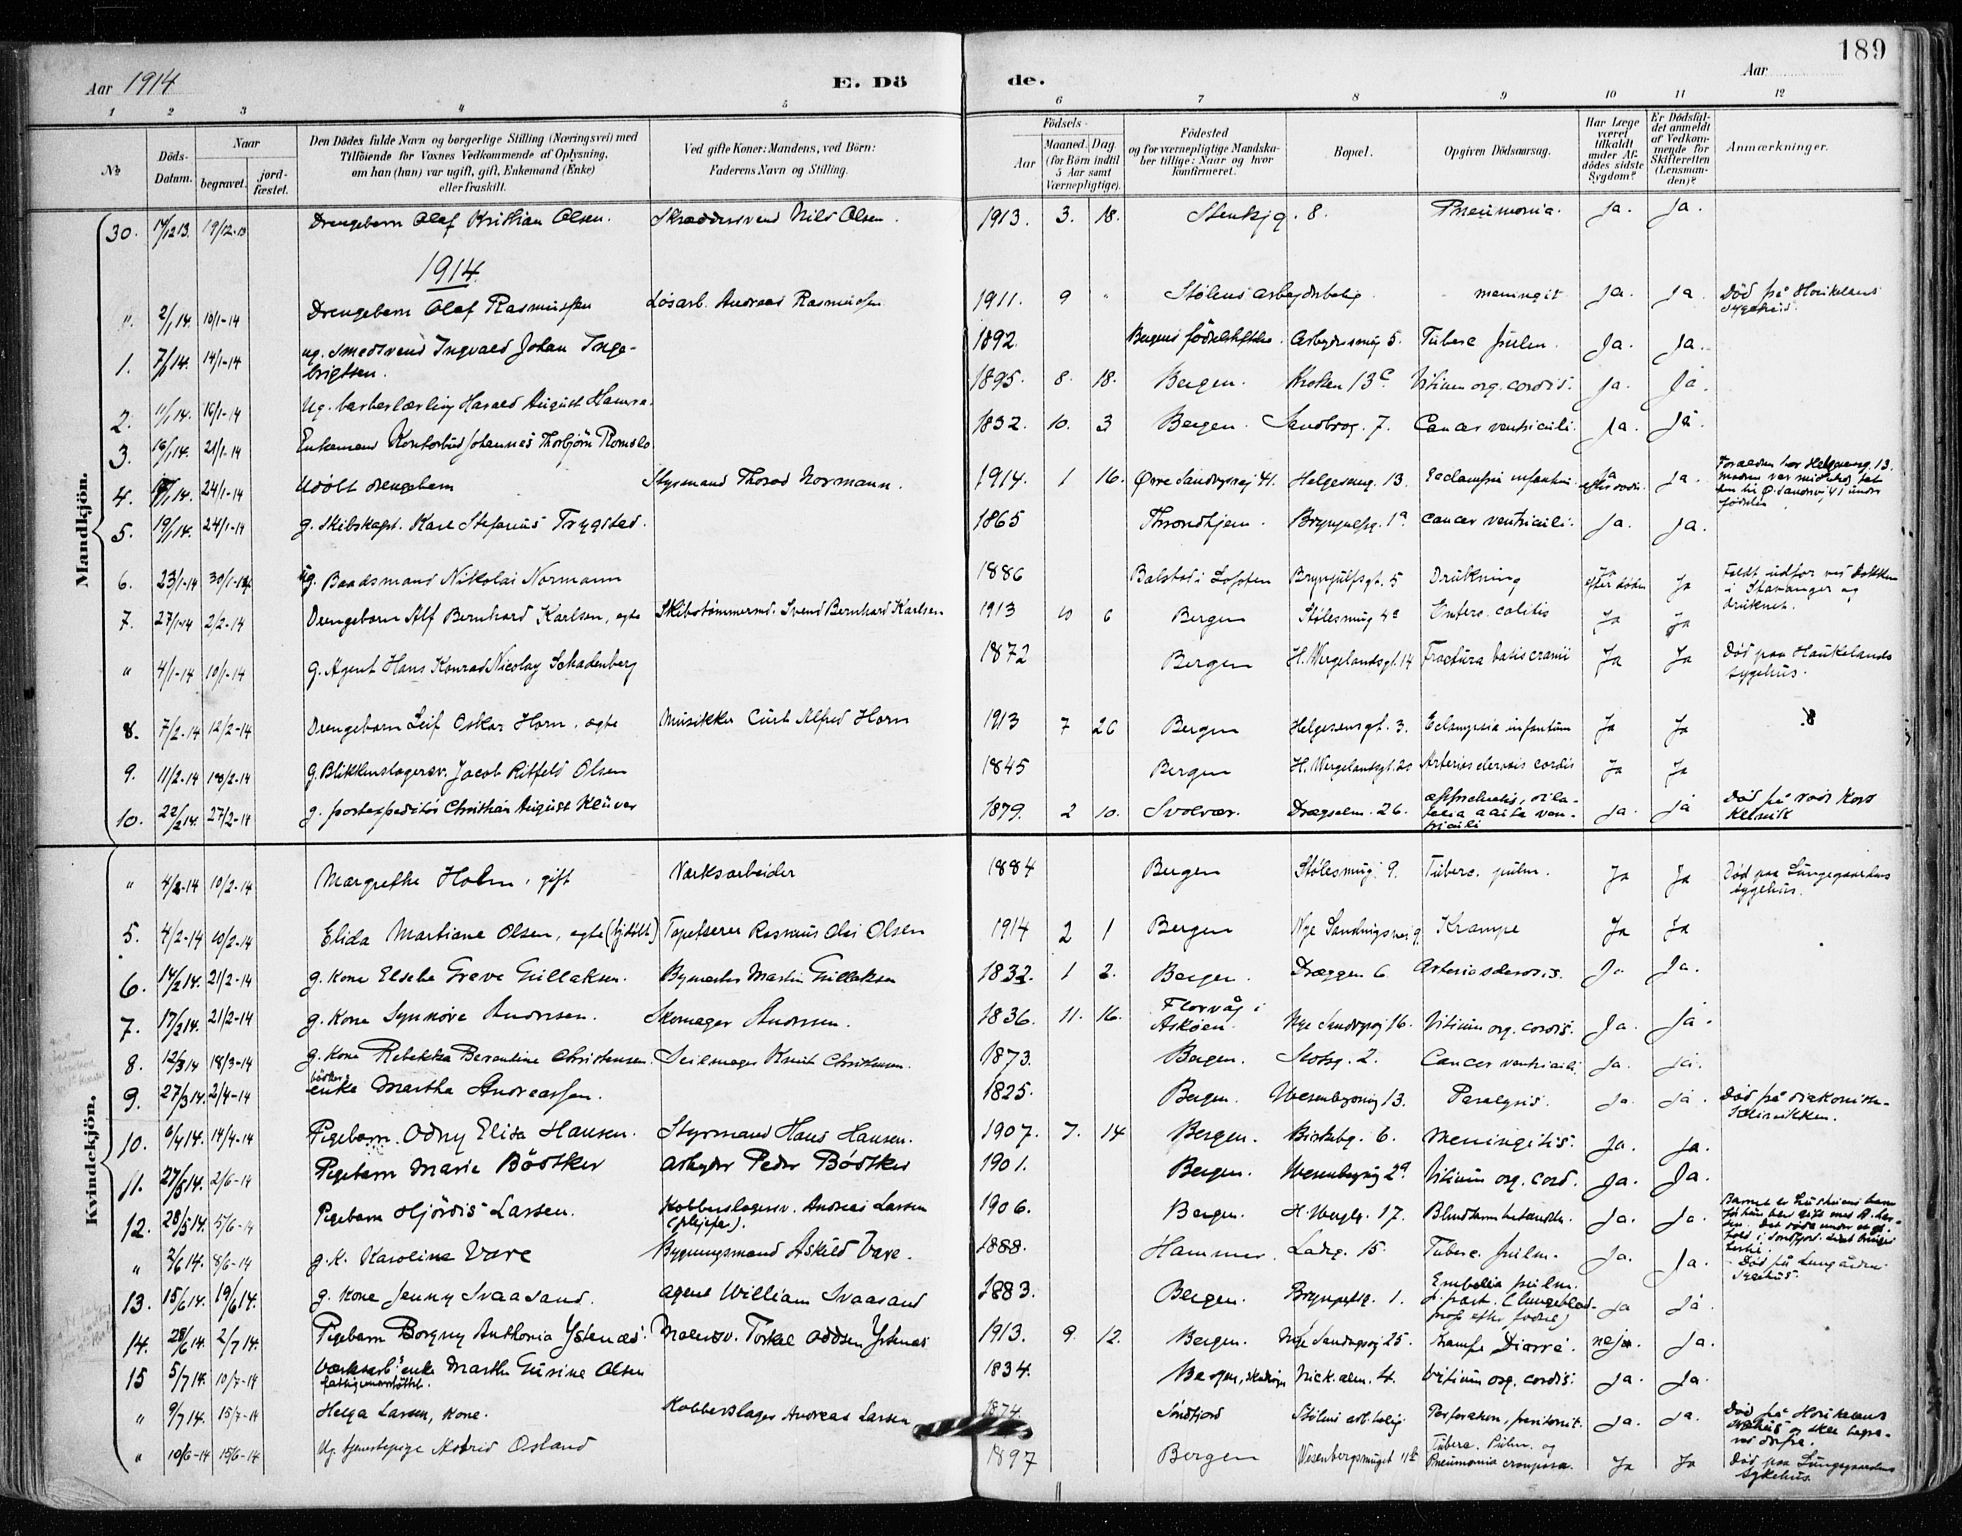 189
Aar 1914
E. Dö
de.
Aar
1 2 3 4 5 6 7 8 9 10 11 12
№
Döds-Datum.
Naar
begravet.
jord-fæstet.
Den Dödes fulde Navn og borgerlige Stilling (Næringsvei) med
Tilföiende for Voxnes Vedkommende af Oplysning,
om han (hun) var ugift, gift, Enkemand (Enke)
eller fraskilt.
Ved gifte Koner: Mandens, ved Börn:
Faderens Navn og Stilling.
Födsels-
Aar
Maaned. Dag
(for Börn indtil
5 Aar samt
Værnepligtige).
Födested
og for værnepligtige Mandska-
ber tillige: Naar og hvor
konfirmeret.
Bopæl.
Opgiven Dödsaarsag.
Har Læge
været
tilkaldt
under Af-
dödes sidste
Sygdom?
Er Dödsfal-
det anmeldt
af Vedkom-
mende for
Skifteretten
(Lensman-
den)?
Anmærkninger.
Mandkjön.
30. 17/12 13. 19/12-13 Drengebarn Olaf Kristian Olsen. Skræddersvend Nils Olsen. 1913. 3. 18. Stenkjg. 8. Pneumonia. Ja. Ja.
1914.
" 2/1 14. 10/1-14 Drengebarn Olaf Rasmussen Løsarb. Andreas Rasmussen 1911. 9 " Stølens arbejderbolig. meningit Ja. Ja. Død på Haukelands sygehus.
1. 7/1 14. 14/1-14 ug. smedsvend Ingvald Johan Inge-
brigtsen. 1892. Bergens fødselstiftelse. Arbejdersmug 5. Tuberc pulm. Ja. Ja.
2. 11/1 14. 16/1-14 Ug. barberlærling Harald August Hansen. 1895. 8. 18. Bergen. Kroken 13c. Vitium org. cordis. Ja. Ja
3. 16/1 14. 21/1-14 Enkemand Kontorbud Johannes Thorbjörn Romslo. 1832. 10. 3 Bergen. Sandbrog. 7. Cancer ventriculi. Ja. Ja
4. 24/1-14 Udöbt drengebarn Styrmand Thorvd Normann. 1914. 1 16. Øvre Sandvigsvej 41. Helgesensg. 13. Eclampsi infantum. Ja efter døden. Ja.
5. 19/1 14. 24/1-14 g. Skibskapt. Karl Stefanus Trygstad. 1865 Throndhjem. Brynjulfsg. 1a cancer ventriculi. Ja. Ja.
6. 23/1-14 30/1-14 ug. Baadsmand Nikolai Normann 1886 Balstad i Lofoten Brynjulfsgt. 5 Drukning Ja efter døden Ja Faldt udfor ved Dokken i Stavanger og druknet.
7. 27/1-14 2/2-14 Drengebarn Alf Bernhard Karlsen, egte Skibstømmermd. Svend Bernhard Karlsen 1913 10 6 Bergen Stølesmug 4a Enterc. colitis Ja Ja
" 4/1-14 10/1-14 g. Agent Hans Konrad Nicolay Schadenberg 1872 Bergen H. Wergelandsgt. 14 Fractura basis cranii Ja Ja Død paa Haukelands sygehus.
8. 7/2-14 12/2-14 Drengebarn Leif Oskar Horn. egte Musikker Curt Alfred Horn 1913 7 26 Bergen Helgesensgt. 3. Eclampsia infantum Ja Ja
9. 11/2-14 18/2-14 g. Blikkenslagersv. Jacob Ritfeld Olsen 1845 Bergen H. Wergelandsgt. Arteriosclerosis cordis Ja Ja
10. 22/2 14. 27/2-14 g. postexpeditör Christian August Klüver 1879. 2 10. Svolvær. Drægsalm. 26. Ja. Ja Død på Røde Kors Klinik
Kvindekjön.
" 4/2-14 10/2-14 Margrethe Holm, gift Værksarbeider 1884 Bergen Stølesmug 9. Tuberc. pulm. Ja Ja Død paa Lungegaardens sygehus.
5. 4/2-14 10/2-14 Elida Martiane Olsen, egte (hjdöbt) Tapetserer Rasmus Olai Olsen 1914 2 1 Bergen Nye Sandvigsvei 9. Krampe Ja Ja
6. 14/2 14. 21/2-14 g. kone Elsebe Greve Gullaksen. Bymester Martin Gullaksen 1832. 1 2. Bergen. Dræggen 6 Arteriosclerosis. Ja Ja.
7. 17/2 14. 21/2-14 g. Kone Synnöve Andersen. Skomager Andersen. 1836. 11. 16. Florvåg i Askøen. Nye Sandvigsvej 16. Vitium org. cordis. Ja. Ja.
8. 12/3 14 18/3-14 g. Kone Rebekka Berentine Christensen. Seilmager Knut Christensen. 1873. Bergen. Slotsg. 2. Cancer ventriculi. Ja. Ja.
9. 27/3 14. 2/4-14 enke Martha Andreassen. 1825. Bergen. Wesenbergsmug 13. Paralysis. Ja. Ja. Død på Diakonisse-klinikken.
10. 6/4 14. 14/4-14 Pigebarn. Odny Elisa Hansen. Styrmand Hans Hansen. 1907. 7. 14 Bergen. Birkebg. 6. Meningitis. Ja. Ja.
11. 27/5 14. 2/6-14 Pigebarn Marie Bödtker Arbejder Peder Bödtker 1901. Bergen. Wesenbergsmug 2a. Vitium org. cord. Ja. Ja.
12. 28/5 14. 5/6-14 Pigebarn Hjördis Larsen. Kobberslagersv. Andreas Larsen (plejefar). 1906. Bergen. H. Wergelg. 17. Blindtarmbetændelse. Ja. Ja.
" 2/6 14. 8/6-14 g. k. Karoline Vare Bygningsmand Askild Vare. 1888. Hammer. Ladeg. 15. Tuberc. pulm. Ja. Ja. Død på Lungården Sygehus.
13. 15/6 14. 19/6 14. g. Kone Jenny Svaasand. Agent William Svaasand 1883. Bergen. Brynjulfsg. 1. Embolia pulm. p. part. (lungeblod-prop efter fødsel) Ja Ja
14. 28/6 14. 2/7 14. Pigebarn Borgny Anthonia Ystenæs. Malersv. Torkel Oddsen Ystenæs 1913. 9. 12. Bergen. Nye Sandvigsvej 25. Krampe Diarré. nej Ja.
15 5/7 14. 10/7-14 Værksarb.s enke Marthe Gurine Olsen
fattigunderstöttet. 1834. Bergen, Nick.alm. 4. Vitium org. cordis. Ja. Ja.
" 9/7 14. 15/7-14 Helga Larsen, kone. Kobberslager Andreas Larsen 1874. Söndfjord Stølens arb.bolig Perforation, peritonit. Ja. Ja. Død på Haukelands sygehus
" 10/6-14 15/6-14 Ug. tjenestepige Astrid Osland 1897 Bergen Wesenbergsmuget 11b Tuberc. Pulm. og Pneumonia crouposa. Ja Ja Død paa Lungegaardens sykehus.